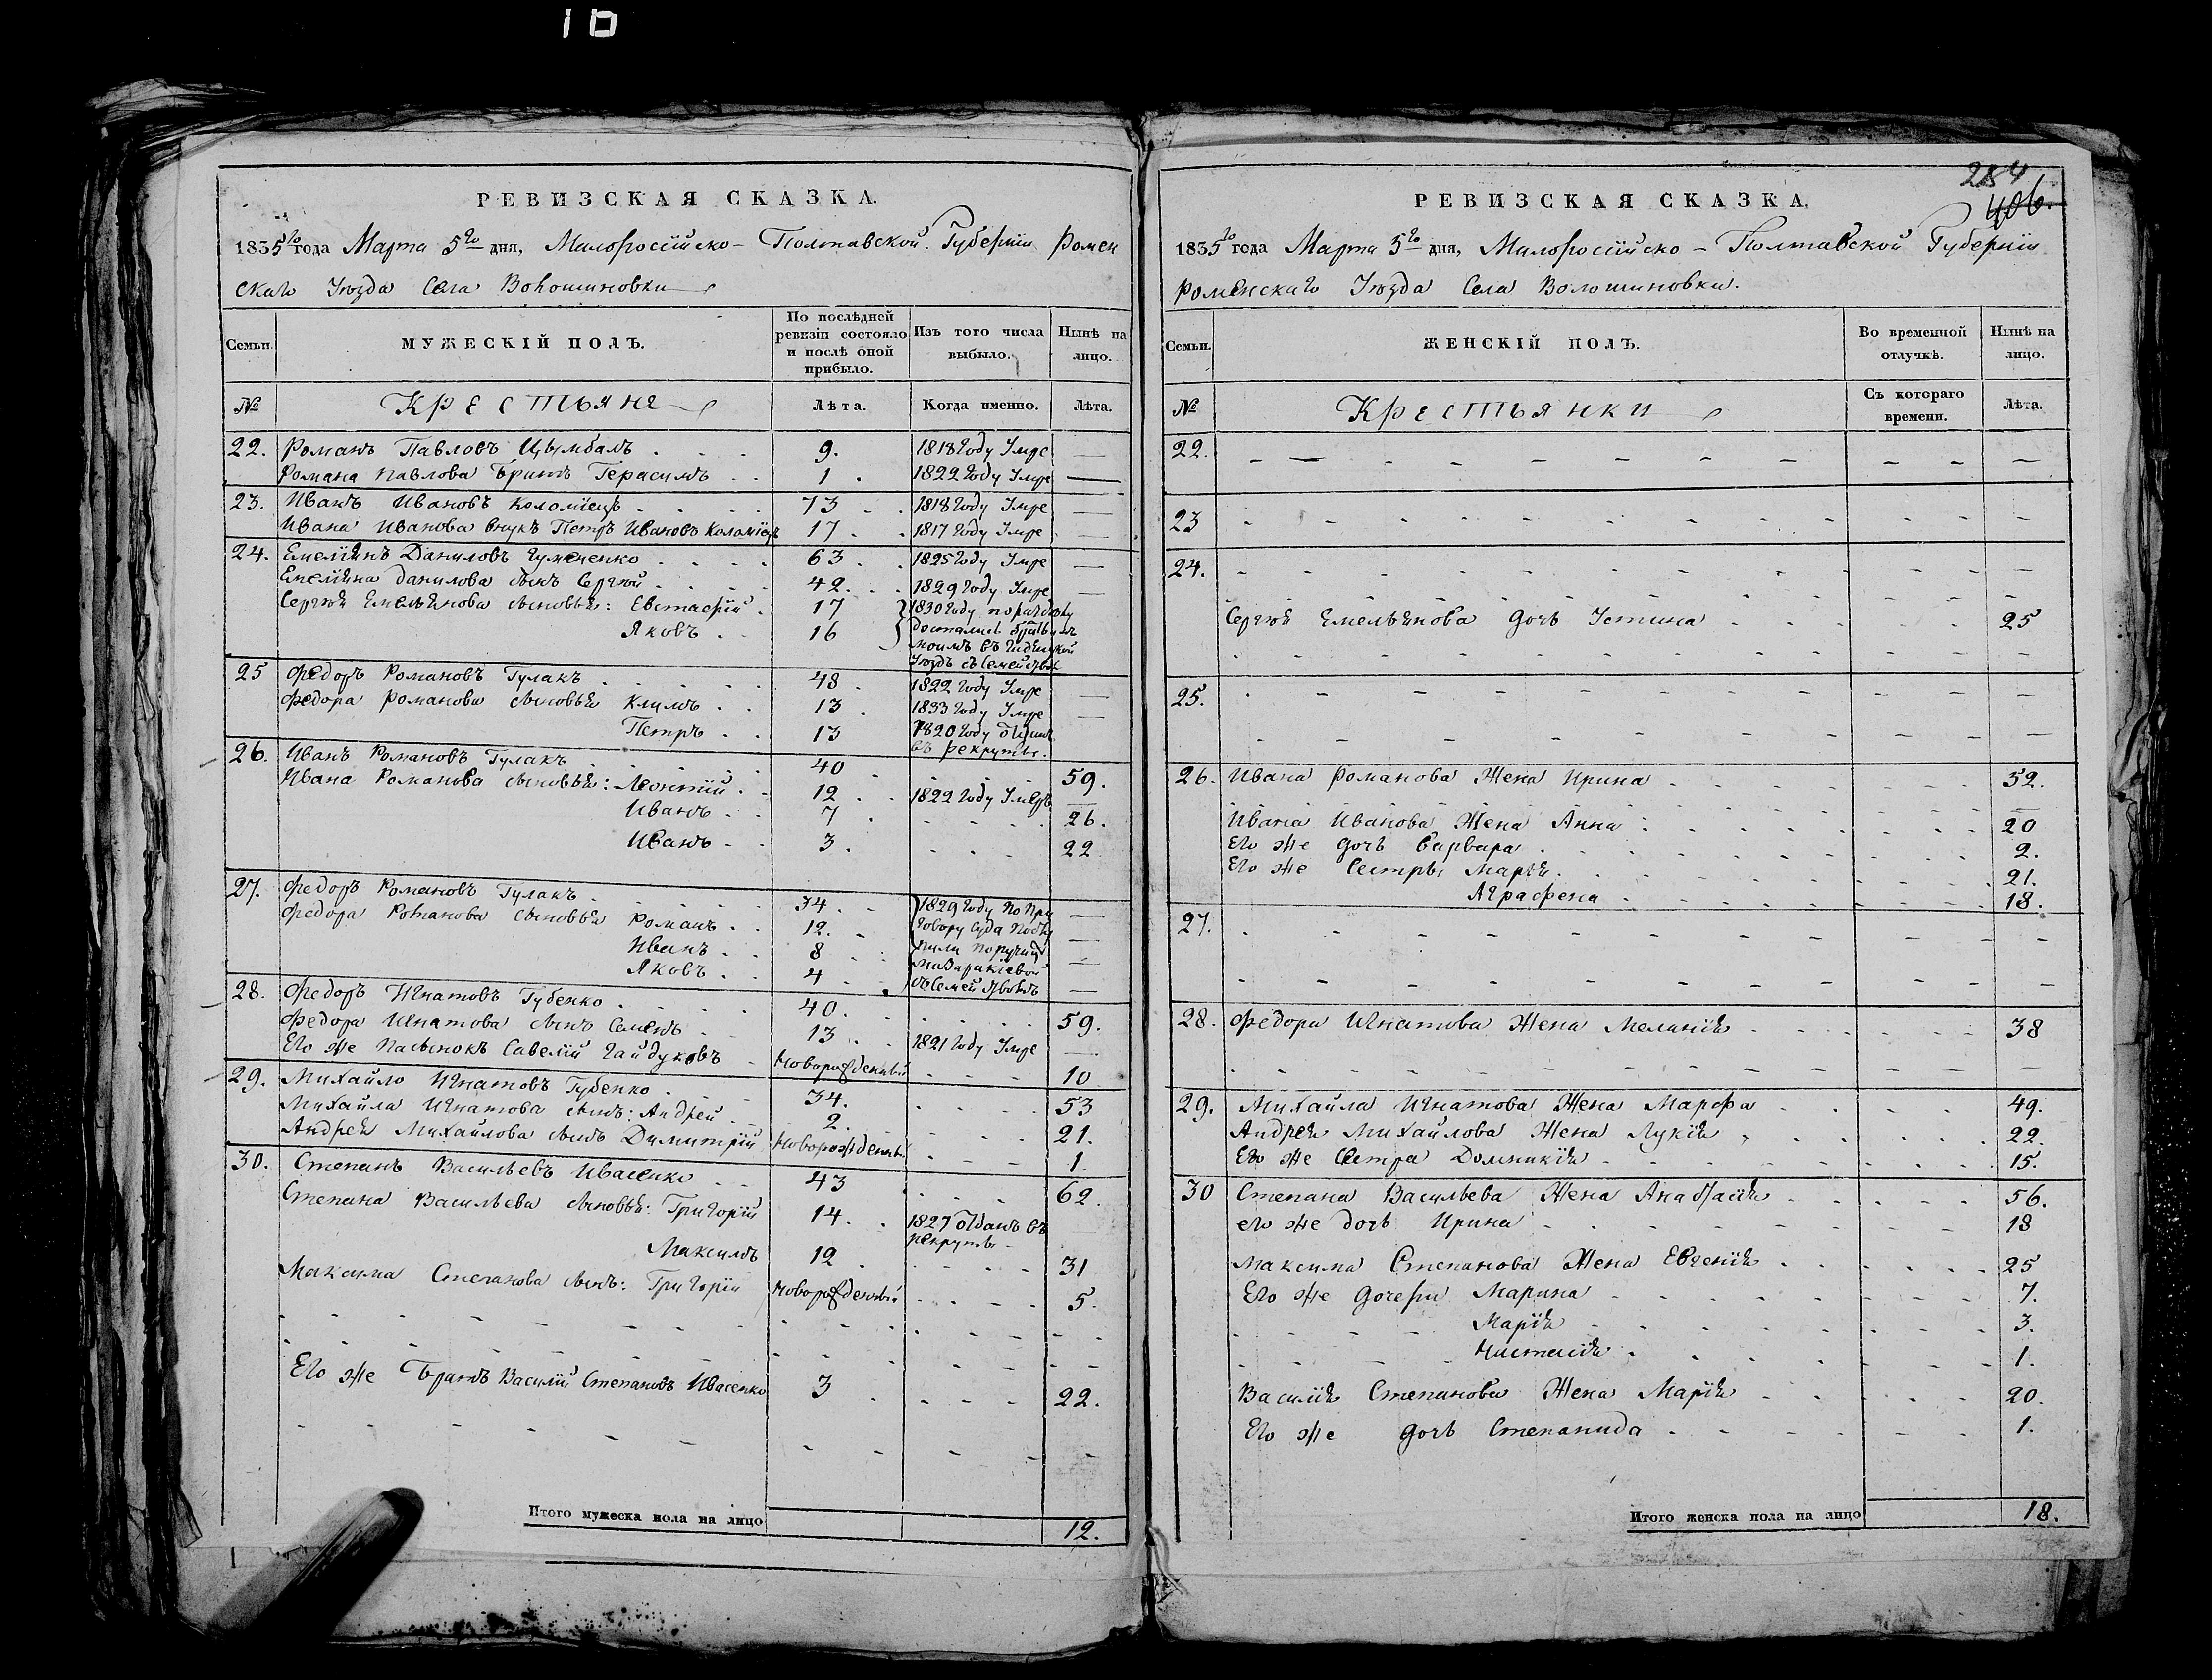 16
РЕВИЗСКАЯ СКАЗКА.
1835го года Марта 5го дня, Малоросiйско-Полтавской Губернiи Ромен
скаго Уѣзда Села Волошиновки
Семьи.
МУЖЕСКIЙ ПОЛЪ.
По послѣдней ревизiи состояло и послѣ оной прибыло.
Изъ того числа выбыло.
Нынѣ на лицо.
№
Крестьяне
Лѣта.
Когда именно.
Лѣта.
22. Романъ Павловъ Цымбалъ 9. 1818 году Умре —
Романа Павлова Братъ Герасимъ 1. 1822 году Умре —
23. Иванъ Ивановъ Коломiецъ 73 1818 году Умре —
Ивана Иванова внукъ Петръ Ивановъ Коломiецъ 17. 1817 году Умре —
24. Емелiянъ Даниловъ 63. 1825 году Умре —
Емелiяна Данилова сынъ Сергѣй 42. 1829 году Умре —
Сергѣя Емельянова сыновья: Евстафiй 17 1830 году по раздѣлу
Яковъ 16 достались братьямъ
моимъ въ Уѣздъ съ Семействомъ
25 Федоръ Романовъ Гулакъ 48 1822 году Умре —
Федора Романова сыновья Климъ 13. 1833 году Умре —
Петръ 13 1820 году отданъ
въ рекруты.
26. Иванъ Романовъ Гулакъ 40 59.
Ивана Романова сыновья: Леонтiй 12 1822 году Умеръ —
Иванъ 7 26.
Иванъ 3. 22
27. Федоръ Романовъ Гулакъ 34. 1829 году по При —
Федора Романова сыновья Романъ 12. говору Суда —
Иванъ 8 —
Яковъ 4 съ Семействомъ —
28. Федоръ Игнатовъ Губенко 40. 59.
Федора Игнатова сынъ Семенъ 13 1821 году Умре —
Его же пасынокъ Савелiй Гайдуковъ Новорожденный 10
29. Михайло Игнатовъ Губенко 34. 53
Михайла Игнатова сынъ: Андрей 2. 21.
Андрея Михайлова сынъ Димитрiй Новорожденный 1.
30. Степанъ Васильевъ Ивасенко 43 62.
Степана Васильева сыновья: Григорiй 14. 1827 отданъ въ
рекруты
Максимъ 12 31
Максима Степанова сынъ: Григорiй Новорожденный 5.
Его же Братъ Василiй Степановъ Ивасенко 3 22.
Итого мужеска пола на лицо 12.
284
406.
РЕВИЗСКАЯ СКАЗКА.
1835го года Марта 5го дня, Малоросiйско-Полтавской Губернiи
Роменскаго Уѣзда Села Волошиновки.
Семьи.
ЖЕНСКIЙ ПОЛЪ.
Во временной отлучкѣ.
Нынѣ на лицо.
№
Крестьянки
Съ котораго времени.
Лѣта.
22.
23
24.
Сергѣя Емельянова дочь Устина 25
25.
26. Ивана Романова Жена Ирина 52.
Ивана Иванова Жена Анна 20
Его же дочь Варвара 2.
Его же Сестры Марья 21.
Аграфена 18.
27.
28. Федора Игнатова Жена Меланiя 38
29. Михайла Игнатова Жена Марфа 49.
Андрея Михайлова Жена Лукiя 22.
Его же Сестра Домникiя 15.
30 Степана Васильева Жена Анастасiя 56.
его же дочь Ирина 18
Максима Степанова Жена Евгенiя 25
Его же дочери Марина 7.
Марiя 3.
Настасiя 1.
Василiя Степанова Жена Марiя 20.
Его же дочь Степанида 1.
Итого женска пола на лицо 18.